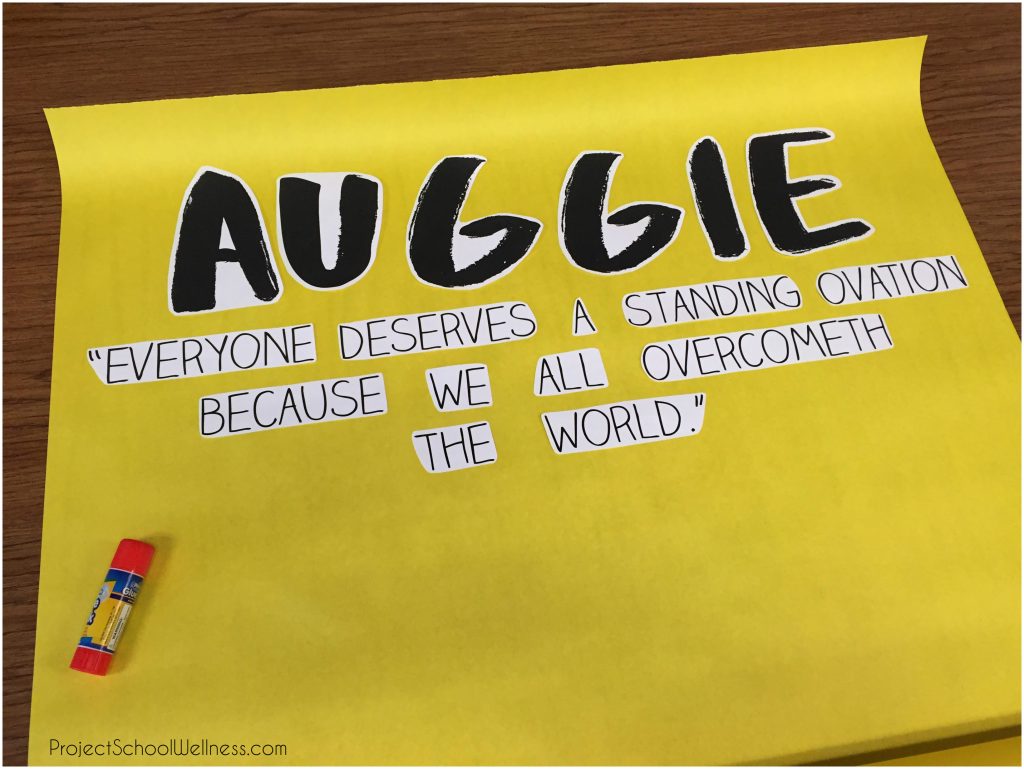 AUGGIE
"EVERYONE DESERVES A STANDING OVATION
BECAUSE WE ALL OVERCOMETH
THE WORLD."
ProjectSchoolWellness.com